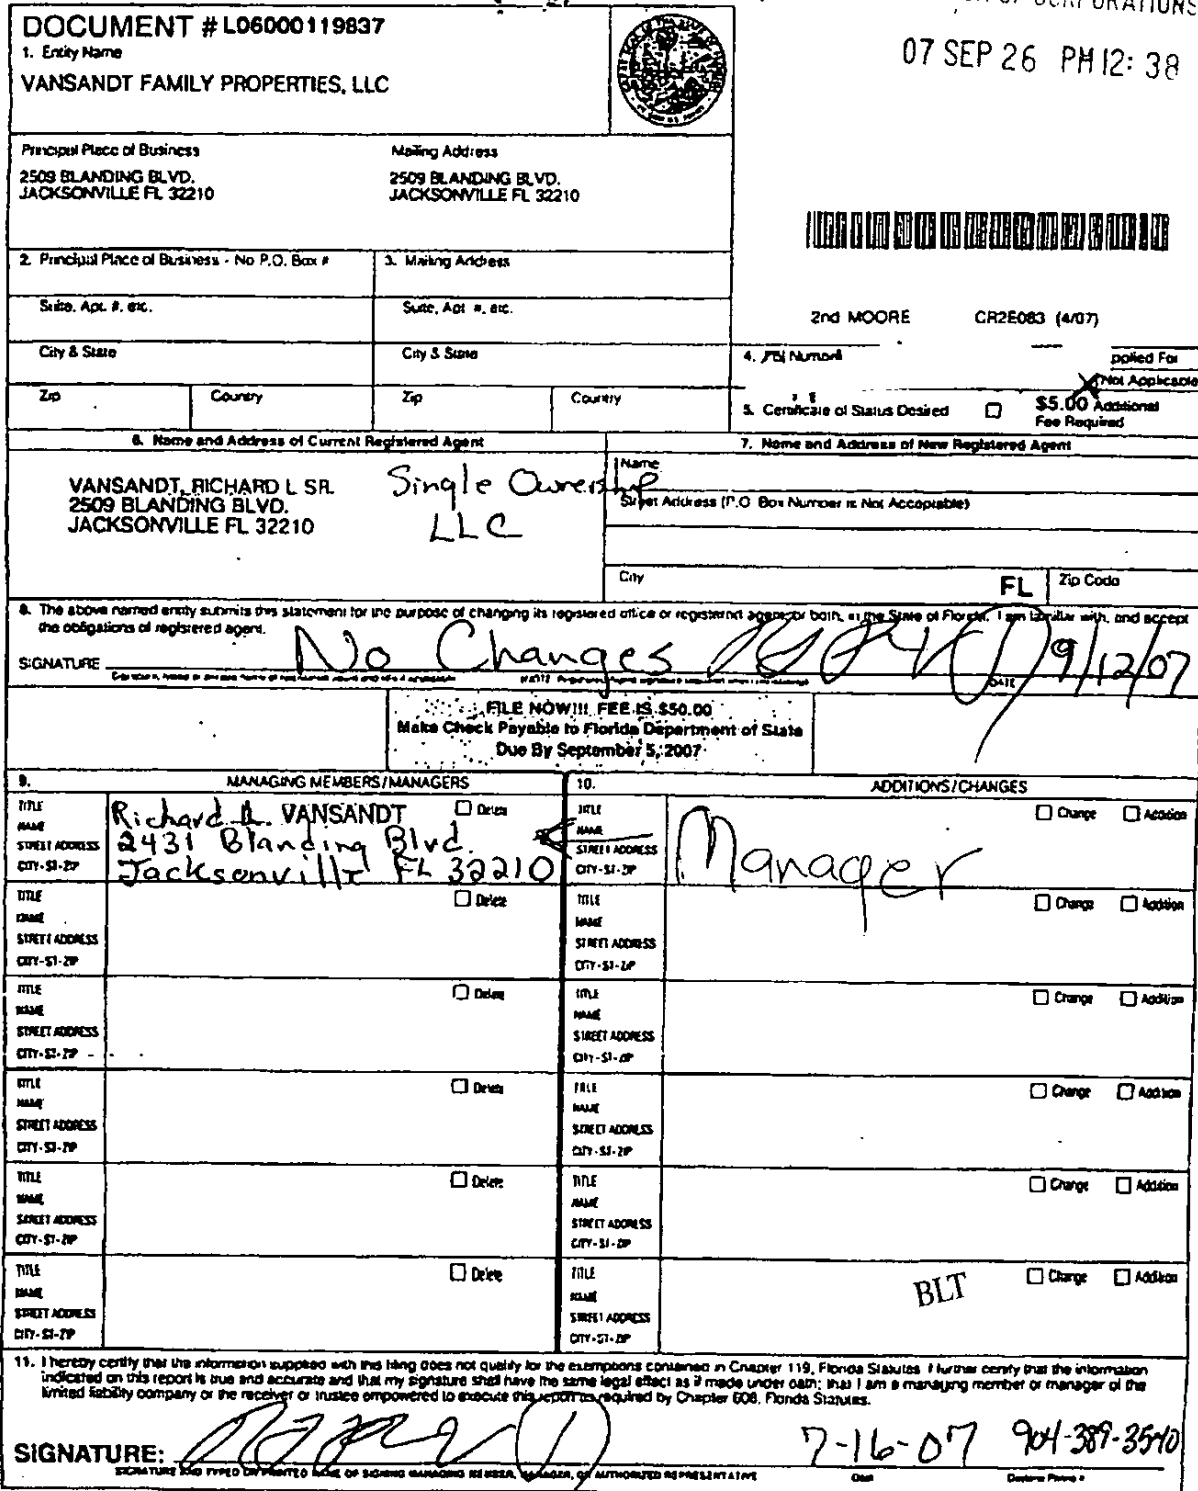 DOCUMENT # L06000119837
1. Entity Name
VANSANDT FAMILY PROPERTIES, LLC
CORPORATIONS
07 SEP 26 PM 12: 38
Principal Place of Business
2509 BLANDING BLVD.
JACKSONVILLE FL 32210
Mailing Address
2509 BLANDING BLVD.
JACKSONVILLE FL 32210
2. Principal Place of Business - No P.O. Box #
3. Mailing Address
Suite, Apt. #, etc.
Suite, Apt #, etc.
2nd MOORE CR2E083 (4/07)
City & State
City & State
4. FEI Number
Applied For
Not Applicable
Zip
Country
Zip
Country
5. Certificate of Status Desired
$5.00 Additional
Fee Required
6. Name and Address of Current Registered Agent
7. Name and Address of New Registered Agent
VANSANDT, RICHARD L SR.
2509 BLANDING BLVD.
JACKSONVILLE FL 32210
Single Ownership
LLC
Name
Street Address (P.O. Box Number is Not Acceptable)
City
FL
Zip Code
8. The above named entity submits this statement for the purpose of changing its registered office or registered agent, or both, in the State of Florida. I am familiar with, and accept
the obligations of registered agent.
SIGNATURE
No Changes
9/12/07
DATE
FILE NOW!!! FEE IS $50.00
Make Check Payable to Florida Department of State
Due By September 5, 2007
9. MANAGING MEMBERS/MANAGERS
10. ADDITIONS/CHANGES
TITLE
NAME
STREET ADDRESS
CITY-ST-ZIP
Richard L. VANSANDT
2431 Blanding Blvd.
Jacksonville FL 32210
Delete
TITLE
NAME
STREET ADDRESS
CITY-ST-ZIP
Manager
Change
Addition
TITLE
NAME
STREET ADDRESS
CITY-ST-ZIP
Delete
TITLE
NAME
STREET ADDRESS
CITY-ST-ZIP
Change
Addition
TITLE
NAME
STREET ADDRESS
CITY-ST-ZIP
Delete
TITLE
NAME
STREET ADDRESS
CITY-ST-ZIP
Change
Addition
TITLE
NAME
STREET ADDRESS
CITY-ST-ZIP
Delete
TITLE
NAME
STREET ADDRESS
CITY-ST-ZIP
Change
Addition
TITLE
NAME
STREET ADDRESS
CITY-ST-ZIP
Delete
TITLE
NAME
STREET ADDRESS
CITY-ST-ZIP
Change
Addition
TITLE
NAME
STREET ADDRESS
CITY-ST-ZIP
Delete
TITLE
NAME
STREET ADDRESS
CITY-ST-ZIP
BLT
Change
Addition
11. I hereby certify that the information supplied with this filing does not qualify for the exemptions contained in Chapter 119, Florida Statutes. I further certify that the information
indicated on this report is true and accurate and that my signature shall have the same legal effect as if made under oath; that I am a managing member or manager of the
limited liability company or the receiver or trustee empowered to execute this report as required by Chapter 608, Florida Statutes.
SIGNATURE:
7-16-07
904-389-3540
SIGNATURE AND TYPED OR PRINTED NAME OF SIGNING MANAGING MEMBER, MANAGER, OR AUTHORIZED REPRESENTATIVE
Date
Daytime Phone #